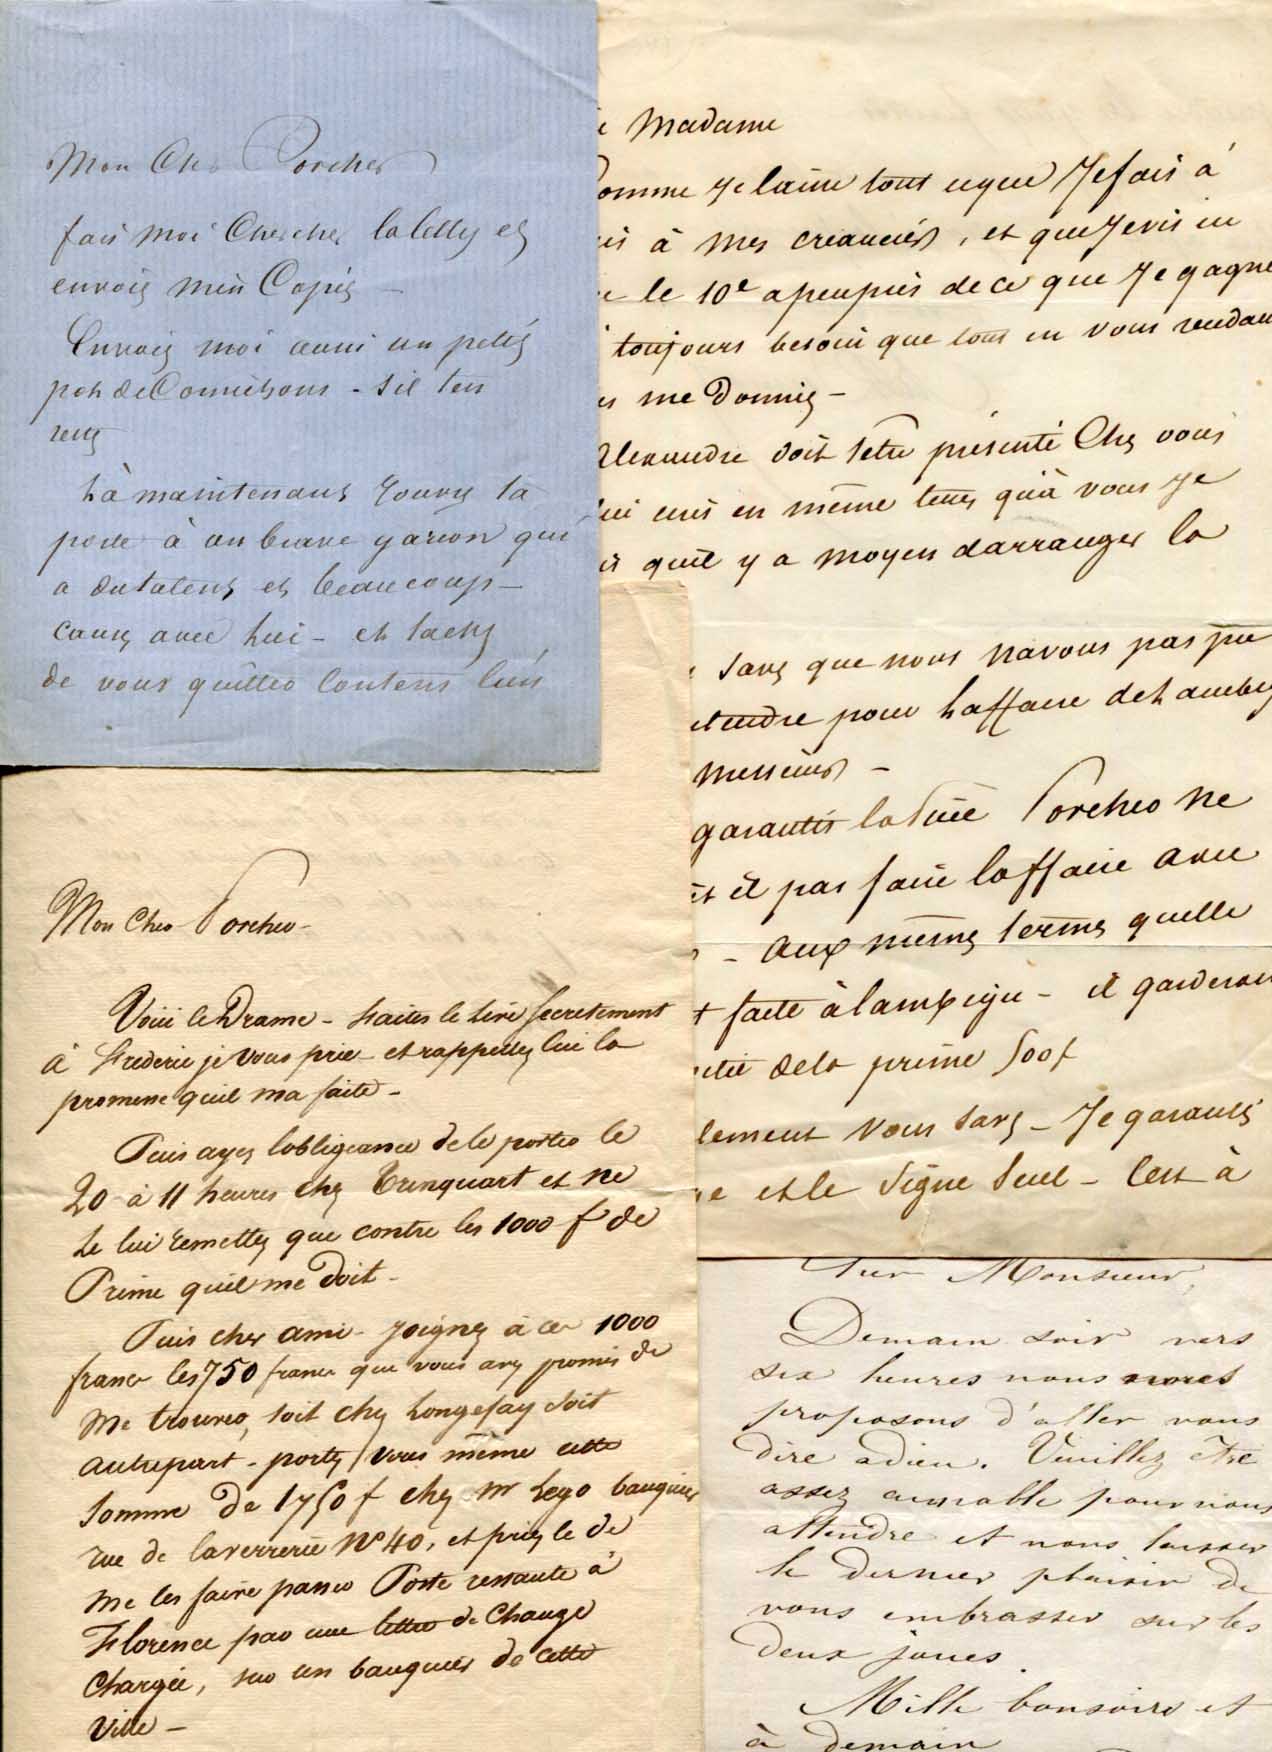 Mon Cher Porcher
fais moi chercher la lettre et
envoie m'en Copie —
Envoie moi aussi un petit
pot de Cornichons - s'il t'en
reste
La maintenant rouvre ta
porte à un brave garcon qui
a du talent et beaucoup —
cause avec lui - et tachez
de vous quitter contens l'un
Madame
Comme Je laisse tout ceque Je fais à
à mes creanciers, et que Je vis
le 10e apeuprès de ce que Je gagne
toujours besoin que tout en vous rendant
me Donniez —
Alexandre doit s'etre présenté Chez vous
en même tems qu'à vous Je
qu'il y a moyen d'arranger la
savez que nous n'avons pas pu
pour l'affaire de
messieurs —
garantis la Pièce Porcher ne
il pas faire l'affaire avec
- aux mêmes termes quelle
faite à lambigu - il garderait
dela prime 500f
vous savez - Je garantis
et le signe seul - C'est à
Mon Cher Porcher -
Voici le Drame - Faites le lire secretement
à Frederic je vous prie - et rappellez lui la
promesse qu'il m'a faite -
Puis ayez l'obligeance de le porter le
20 à 11 heures chez Trinquart et ne
le lui remettez que contre les 1000 f de
Prime qu'il me doit -
Puis cher ami - joignez à ces 1000
francs les 750 francs que vous avez promis de
me trouver, soit chez Longefay soit
autrepart - portez vous même cette
somme de 1750 f chez mr Lego banquier
rue de laverrerie No 40, et priez le de
me les faire passer Poste restante à
Florence par une lettre de Change
Chargée, sur un banquier de cette
ville —
Monsieur,
Demain soir vers
six heures nous nous
proposons d'aller vous
dire adieu. Veuillez être
assez aimable pour nous
attendre et nous laisser
le dernier plaisir de
vous embrasser sur les
deux joues.
Mille bonsoirs et
à demain